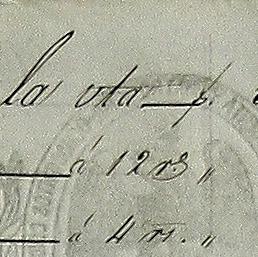 la vta p.
á 12 rs „
á 4 rs. „